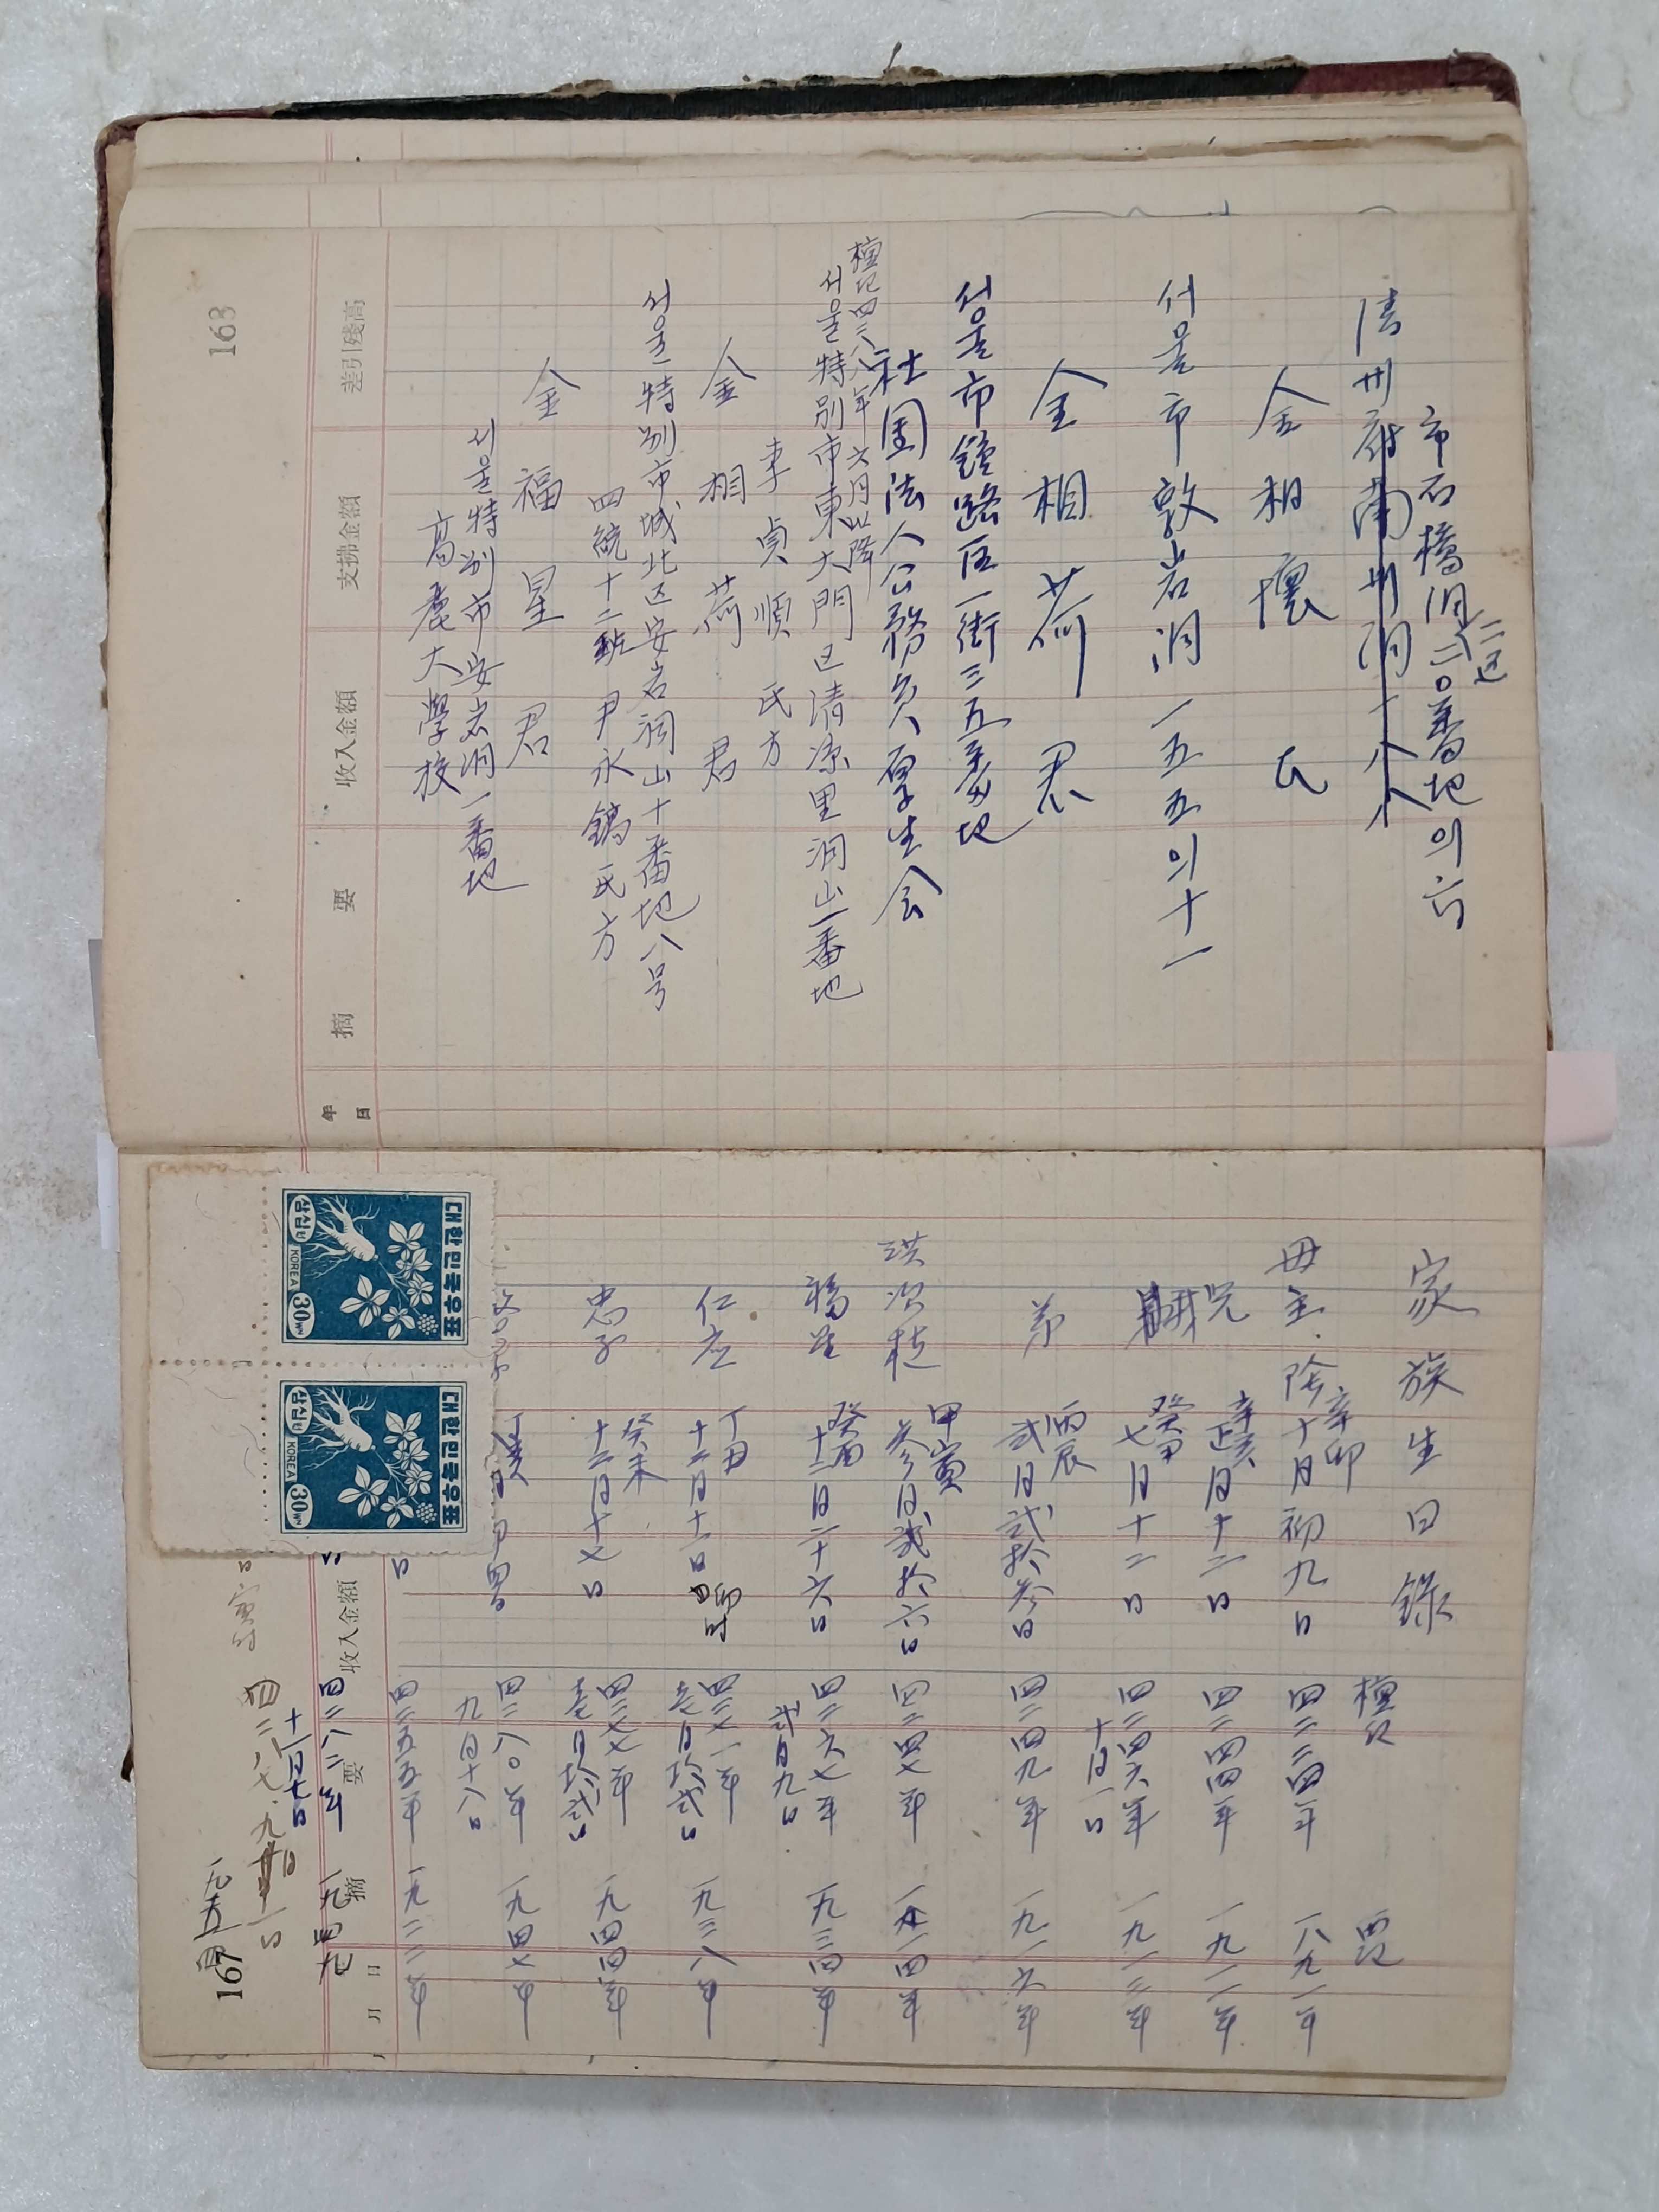 163
差引殘高
支拂金額
收入金額
要
摘
年
月
日
市石橋洞二〇番地의六
二区
清州府南州洞十八
金相懷氏
서울市敦岩洞一五五의十一
金相荷君
서울市鐘路区一街三五番地
社団法人公務員厚生会
檀記四二八八年六月以降
서울特別市東大門区清凉里洞山一番地
李貞順氏方
金相荷君
서울特別市城北区安岩洞山十番地八号
四統十二班尹永鎬氏方
金福星君
서울特別市安岩洞一番地
高麗大學校
家族生日錄
檀記 西紀
母主 陰十月初九日 辛卯 四二二四年 一八九一年
兄 辛亥 正月十二日 四二四四年 一九一一年
癸丑 七月十二日 四二四六年 十月一日 一九一三年
弟 丙辰 弐月弐拾参日 四二四九年 一九一六年
洪淑植 甲寅 参月弐拾六日 四二四七年 一九一四年
福星 癸酉 十二月二十六日 四二六七年 弐月九日 一九三四年
仁應 丁丑 十二月十一日 四二七一年 壱月拾弐日 一九三八年
忠子 癸未 十二月十七日 四二七七年 壱月拾弐日 一九四四年
丁亥 四二八〇年 九月十八日 一九四七年
四二五五年 一九二二年
四二八二年 十一月七日 一九四九
四二八七.九
一九五四
대한민국우표
삼십원
KOREA
30WN
대한민국우표
삼십원
KOREA
30WN
收入金額
要
摘
日
月
167